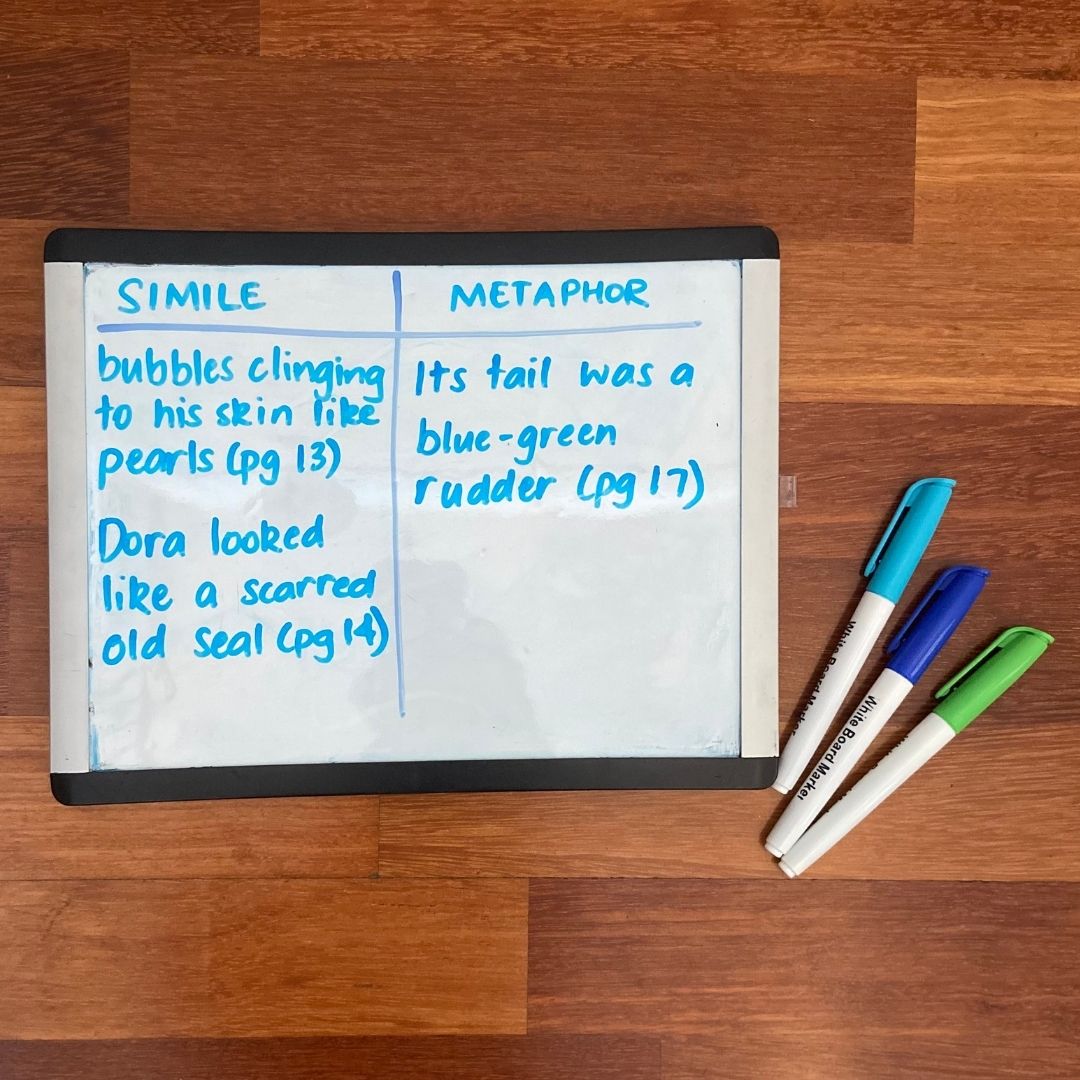 SIMILE
METAPHOR
bubbles clinging
to his skin like
pearls (pg 13)
Dora looked
like a scarred
old seal (pg 14)
Its tail was a
blue-green
rudder (pg 17)
White Board Marker
White Board Marker